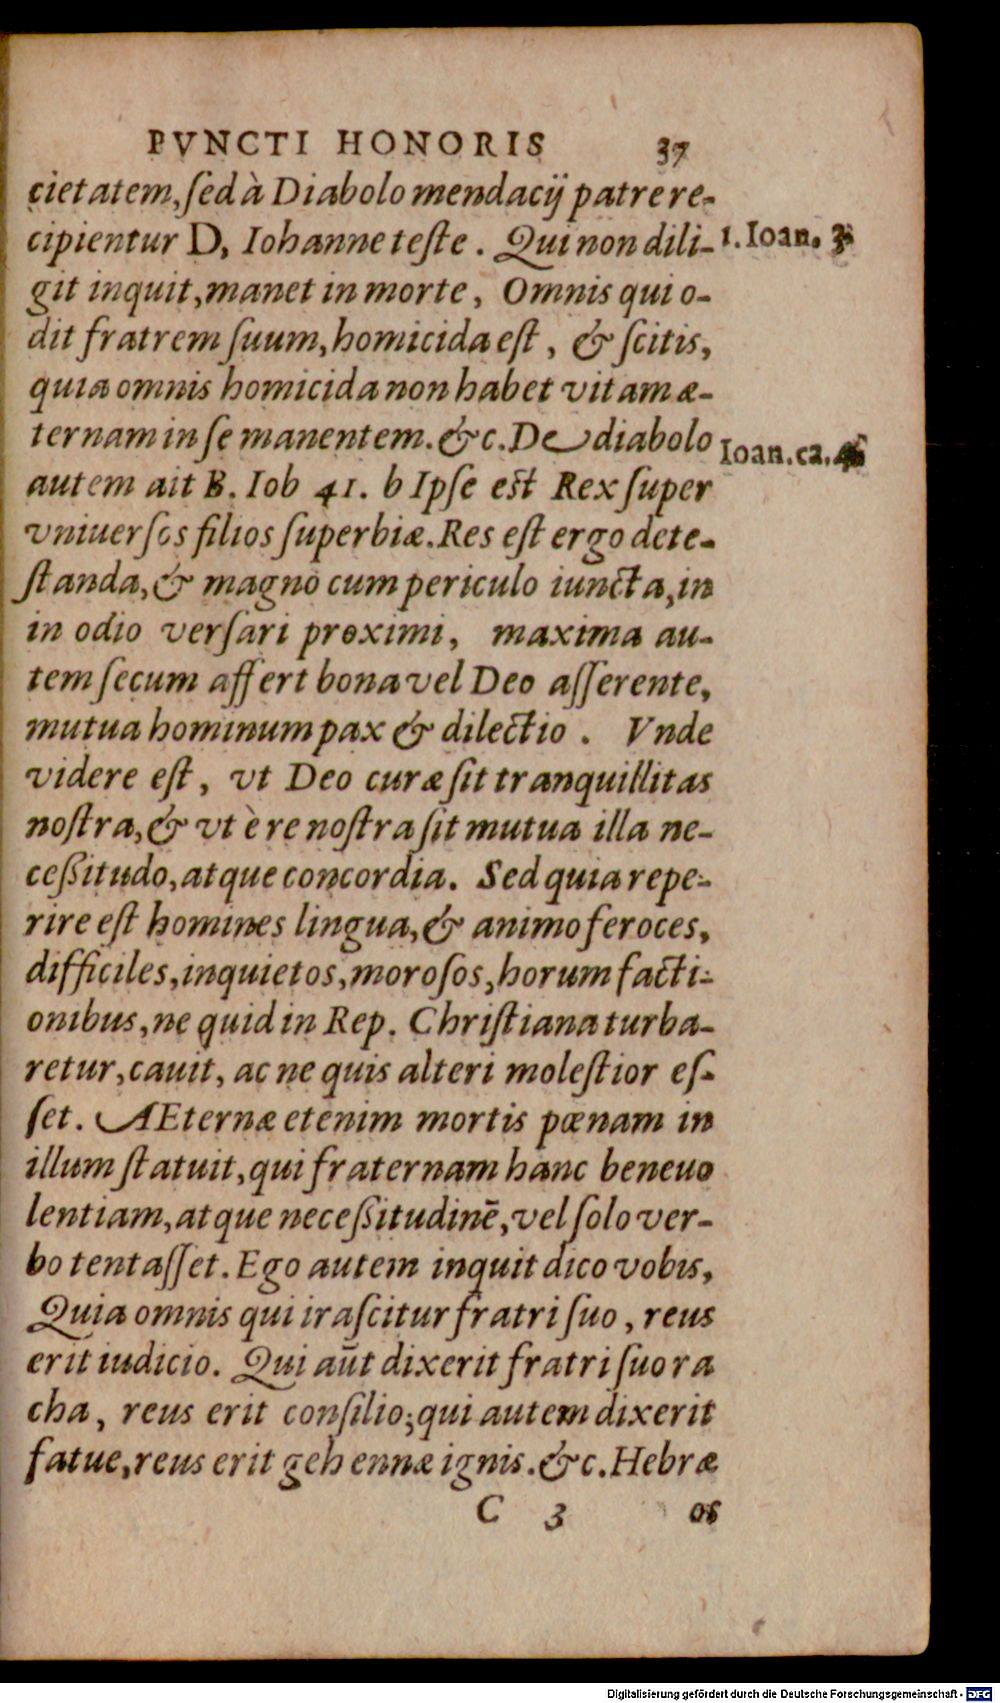 PVNCTI HONORIS 37
cietatem, ſed à Diabolo mendacij patre re-
cipientur D, Iohanne teſte. Qui non dili- 1. Ioan. 3
git inquit, manet in morte, Omnis qui o-
dit fratrem ſuum, homicida eſt, & ſcitis,
quia omnis homicida non habet vitam æ-
ternam in ſe manentem. &c. De diabolo Ioan. ca.
autem ait B. Iob 41. b Ipſe est Rex ſuper
vniuerſos filios ſuperbiæ. Res eſt ergo dete-
ſtanda, & magno cum periculo iuncta, in
in odio verſari proximi, maxima au-
tem ſecum affert bona vel Deo aſſerente,
mutua hominum pax & dilectio. Vnde
videre eſt, vt Deo curæ ſit tranquillitas
noſtra, & vt è re noſtra ſit mutua illa ne-
ceßitudo, atque concordia. Sed quia repe-
rire eſt homines lingua, & animo feroces,
difficiles, inquietos, moroſos, horum facti-
onibus, ne quid in Rep. Chriſtiana turba-
retur, cauit, ac ne quis alteri moleſtior eſ-
ſet. AEternæ etenim mortis pœnam in
illum ſtatuit, qui fraternam hanc beneuo
lentiam, atque neceßitudinē, vel ſolo ver-
bo tentaſſet. Ego autem inquit dico vobis,
Quia omnis qui iraſcitur fratri ſuo, reus
erit iudicio. Qui aūt dixerit fratri ſuo ra
cha, reus erit conſilio; qui autem dixerit
fatue, reus erit gehennæ ignis. &c. Hebræ
C 3 os
Digitalisierung gefördert durch die Deutsche Forschungsgemeinschaft - DFG